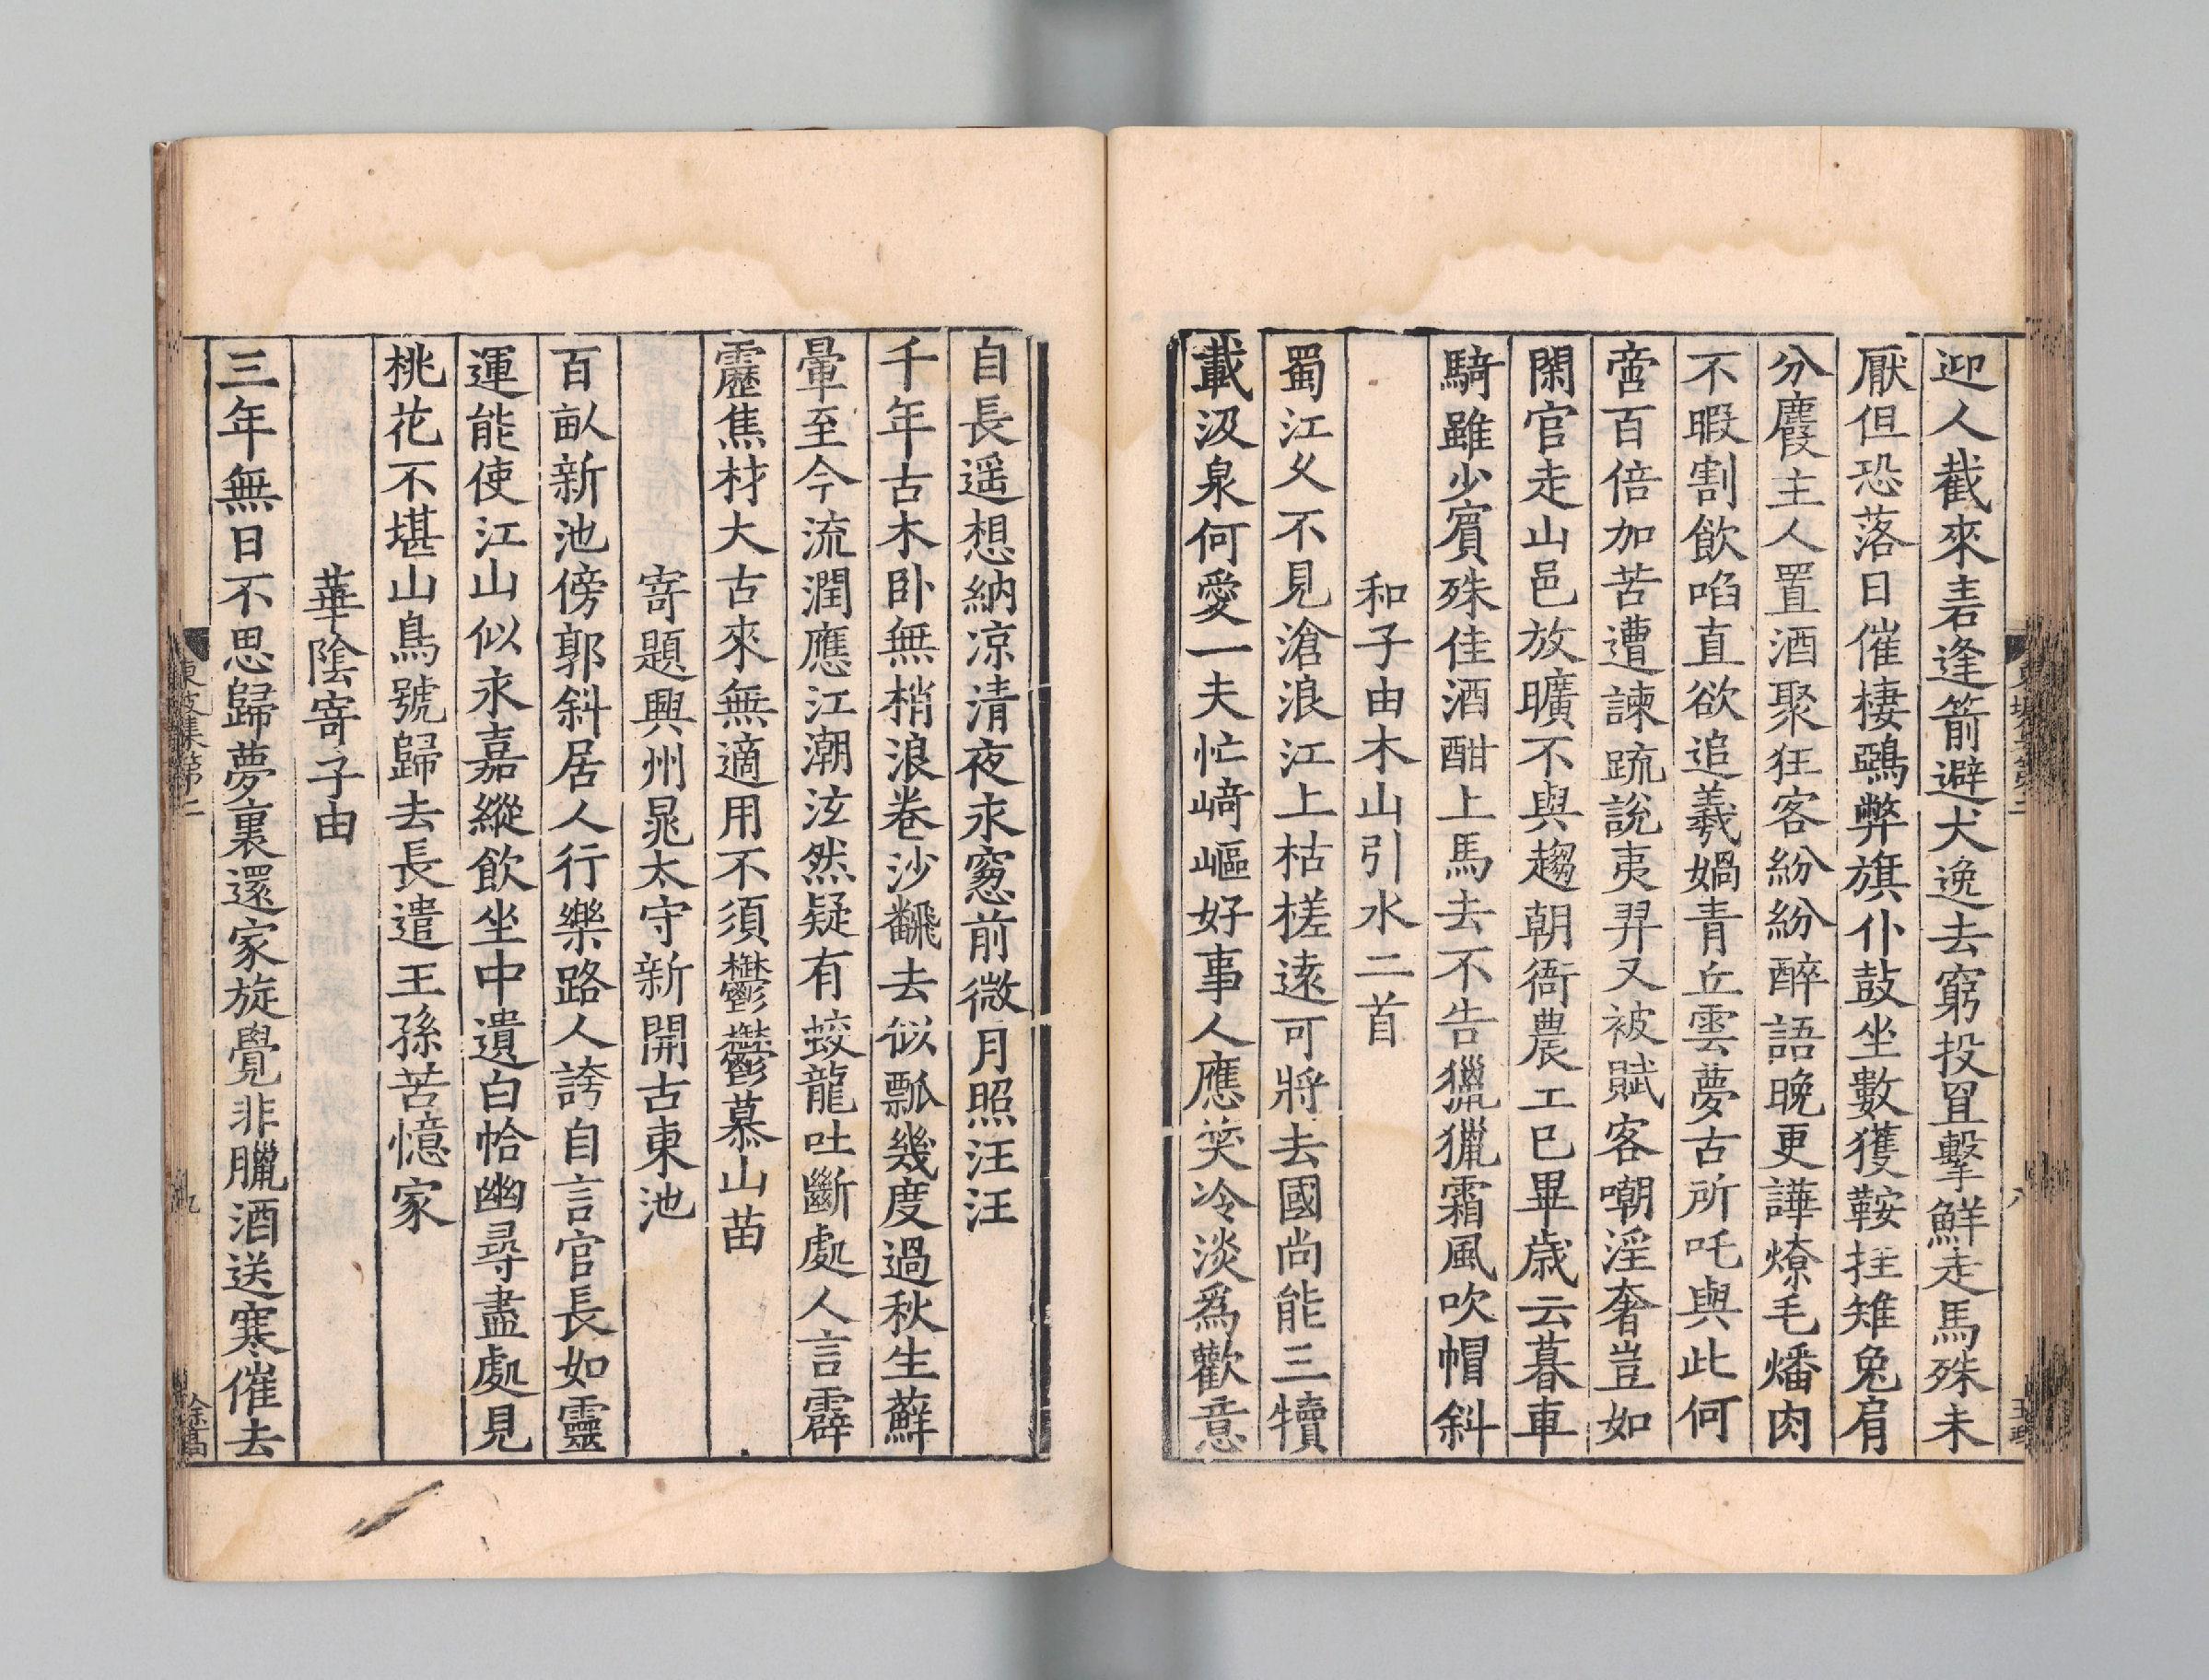 迎人截來砉逢箭避犬逸去窮投罝擊鮮走馬殊未
厭但恐落日催棲鵶弊旗仆鼓坐數獲鞍挂雉兔肩
分麚主人置酒聚狂客紛紛醉語晚更譁燎毛燔肉
不暇割飲啗直欲追羲媧青丘雲夢古所吒與此何
啻百倍加苦遭諫䟽說夷羿又被賦客嘲淫奢豈如
閑官走山邑放曠不與趨朝衙農工已畢歲云暮車
騎雖少賔殊佳酒酣上馬去不告獵獵霜風吹帽斜
和子由木山引水二首
蜀江乆不見滄浪江上枯槎遠可將去國尚能三犢
載汲泉何愛一夫忙崎嶇好事人應笑冷淡爲歡意
自長遥想納凉清夜永窓前微月照汪汪
千年古木卧無梢浪卷沙飜去似瓢幾度過秋生蘚
暈至今流潤應江潮泫然疑有蛟龍吐斷處人言霹
靂焦材大古來無適用不須欝欝慕山苗
寄題興州晁太守新開古東池
百畝新池傍郭斜居人行樂路人誇自言官長如靈
運能使江山似永嘉縱飲坐中遺白帢幽尋盡處見
桃花不堪山鳥號歸去長遣王孫苦憶家
華隂寄子由
三年無日不思歸夢裏還家旋覺非臘酒送寒催去
東坡集第二
九